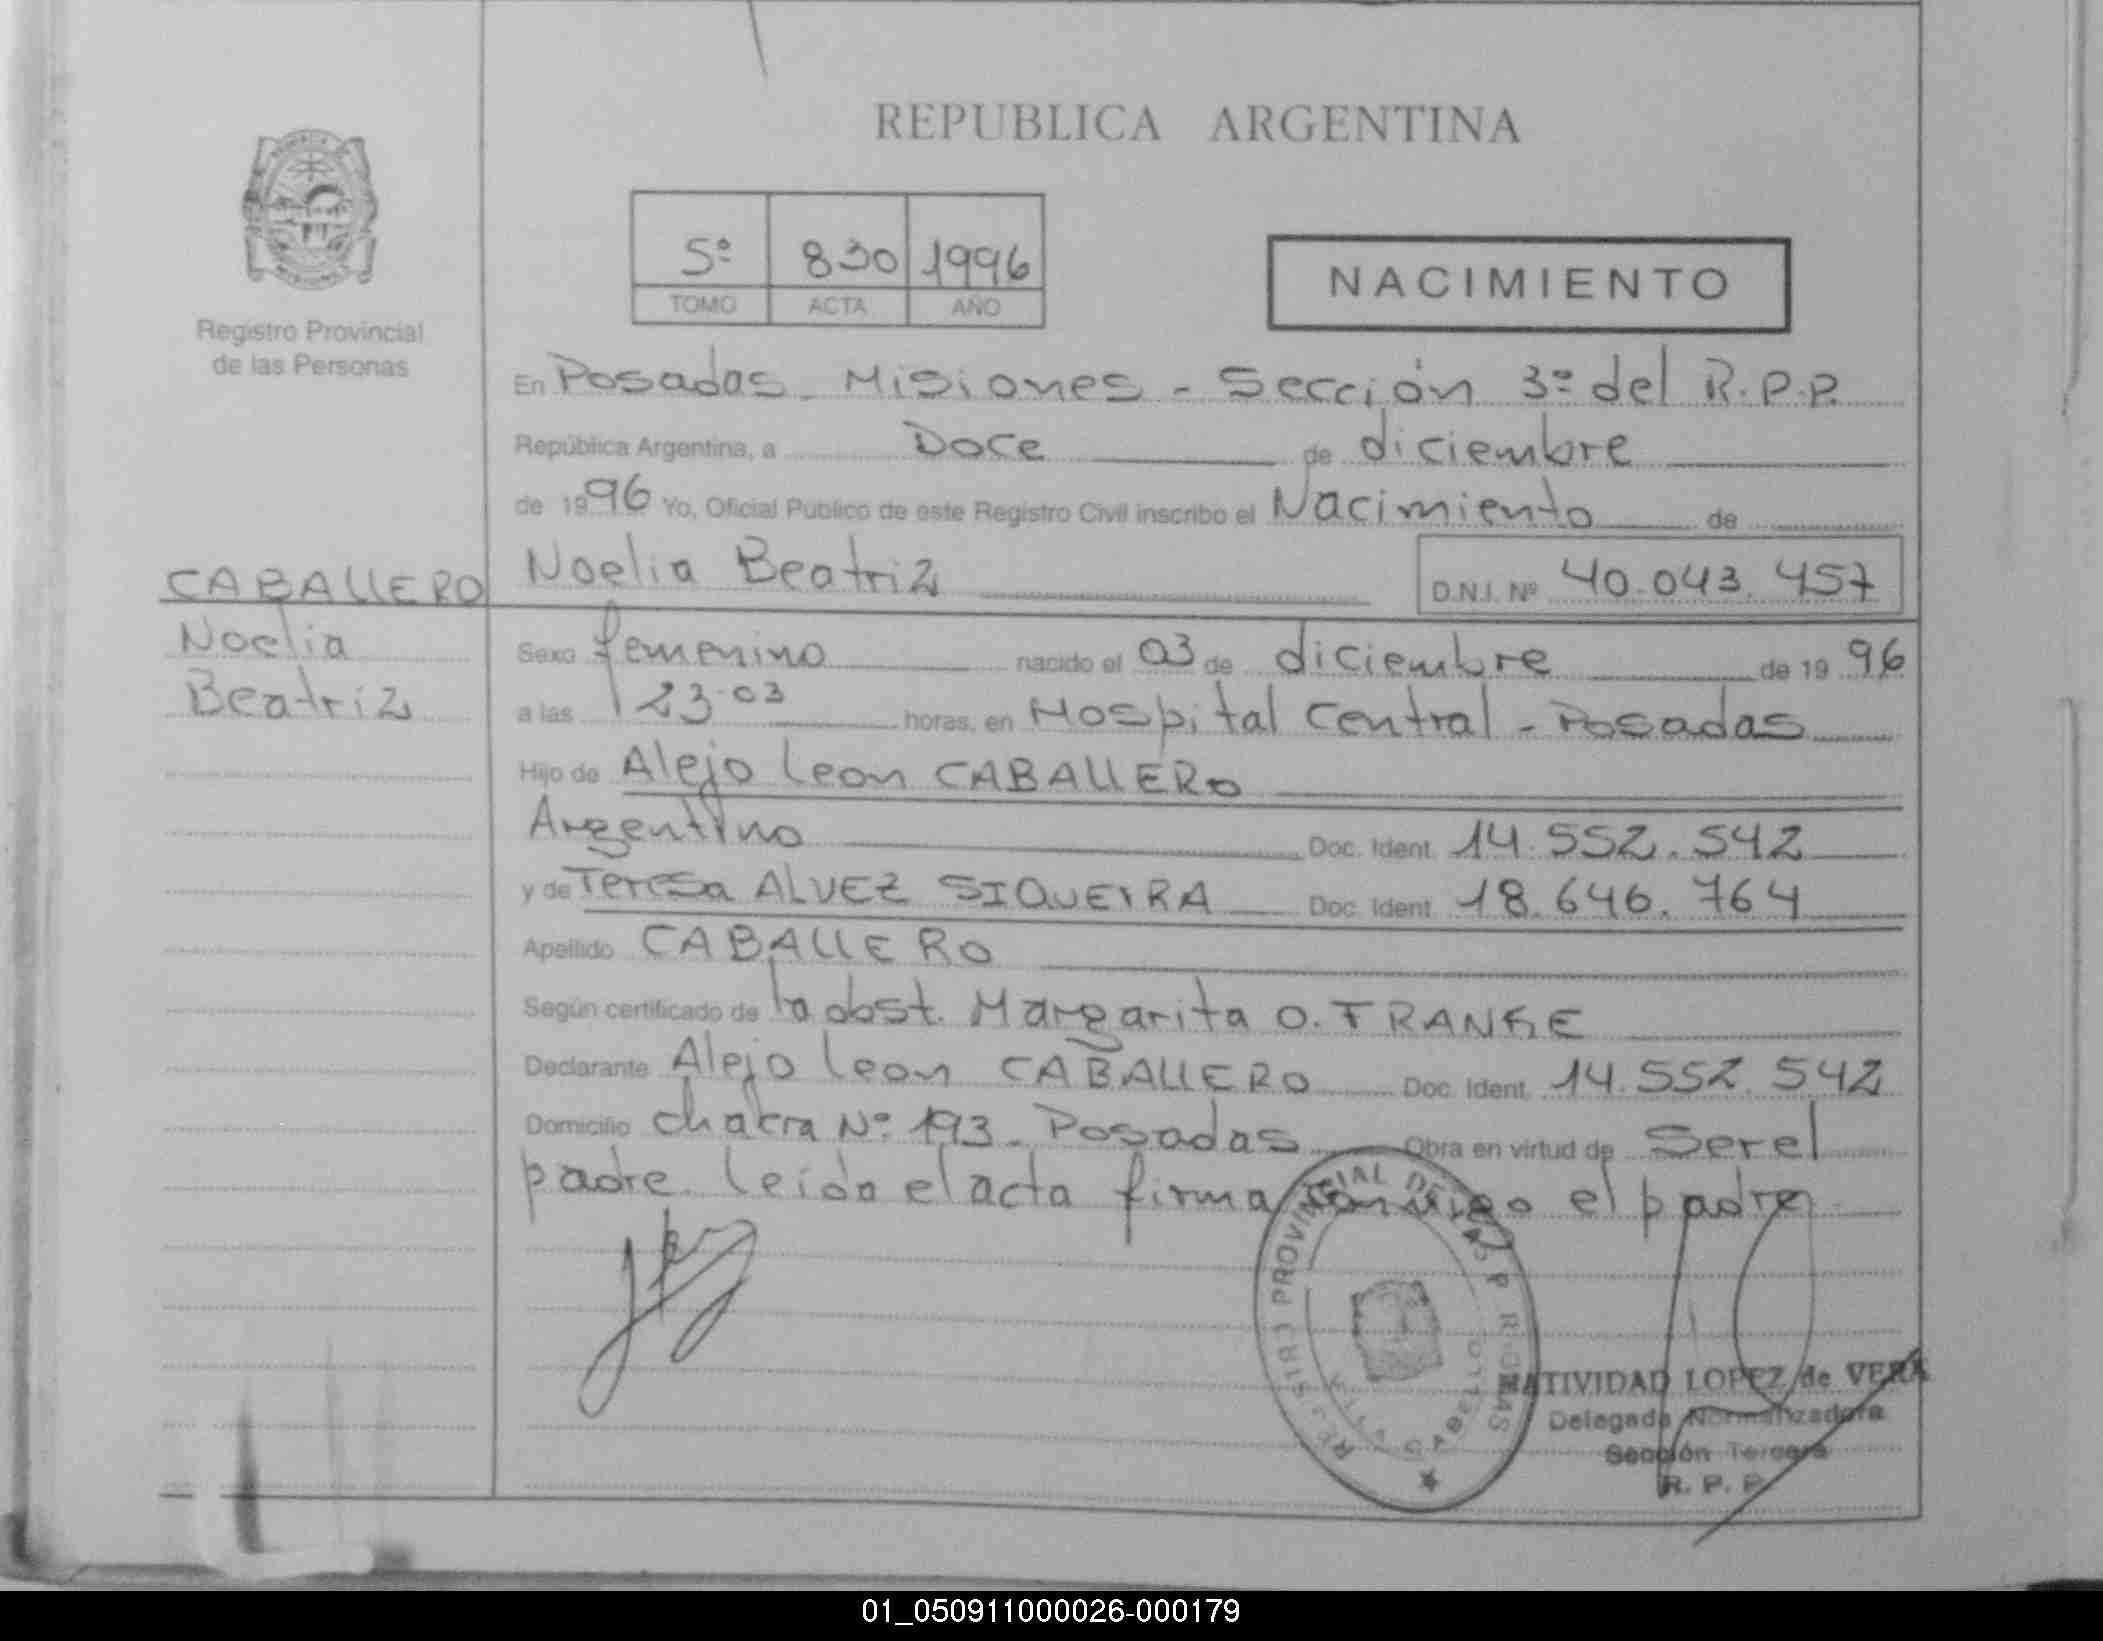 REPUBLICA ARGENTINA
5º 830 1996
TOMO ACTA AÑO
NACIMIENTO
Registro Provincial
de las Personas
En Posadas - Misiones - Sección 3º del R.P.P.
República Argentina, a Doce de diciembre
de 1996 Yo, Oficial Público de este Registro Civil inscribo el Nacimiento de
CABALLERO
Noelia
Beatriz
Noelia Beatriz D.N.I. Nº 40.043.457
Sexo femenino nacido el 03 de diciembre de 1996
a las 23.03 horas, en Hospital Central - Posadas
Hijo de Alejo Leon CABALLERO
Argentino Doc. Ident. 14.552.542
y de Teresa ALVEZ SIQUEIRA Doc. Ident. 18.646.764
Apellido CABALLERO
Según certificado de la obst. Margarita O. FRANKE
Declarante Alejo Leon CABALLERO Doc. Ident. 14.552.542
Domicilio chakra Nº 193 - Posadas Obra en virtud de Ser el
padre. Leido el acta firma conmigo el padre
NATIVIDAD LOPEZ de VERA
Delegada Normalizadora
Sección Tercera
R. P. P.
01_050911000026-000179